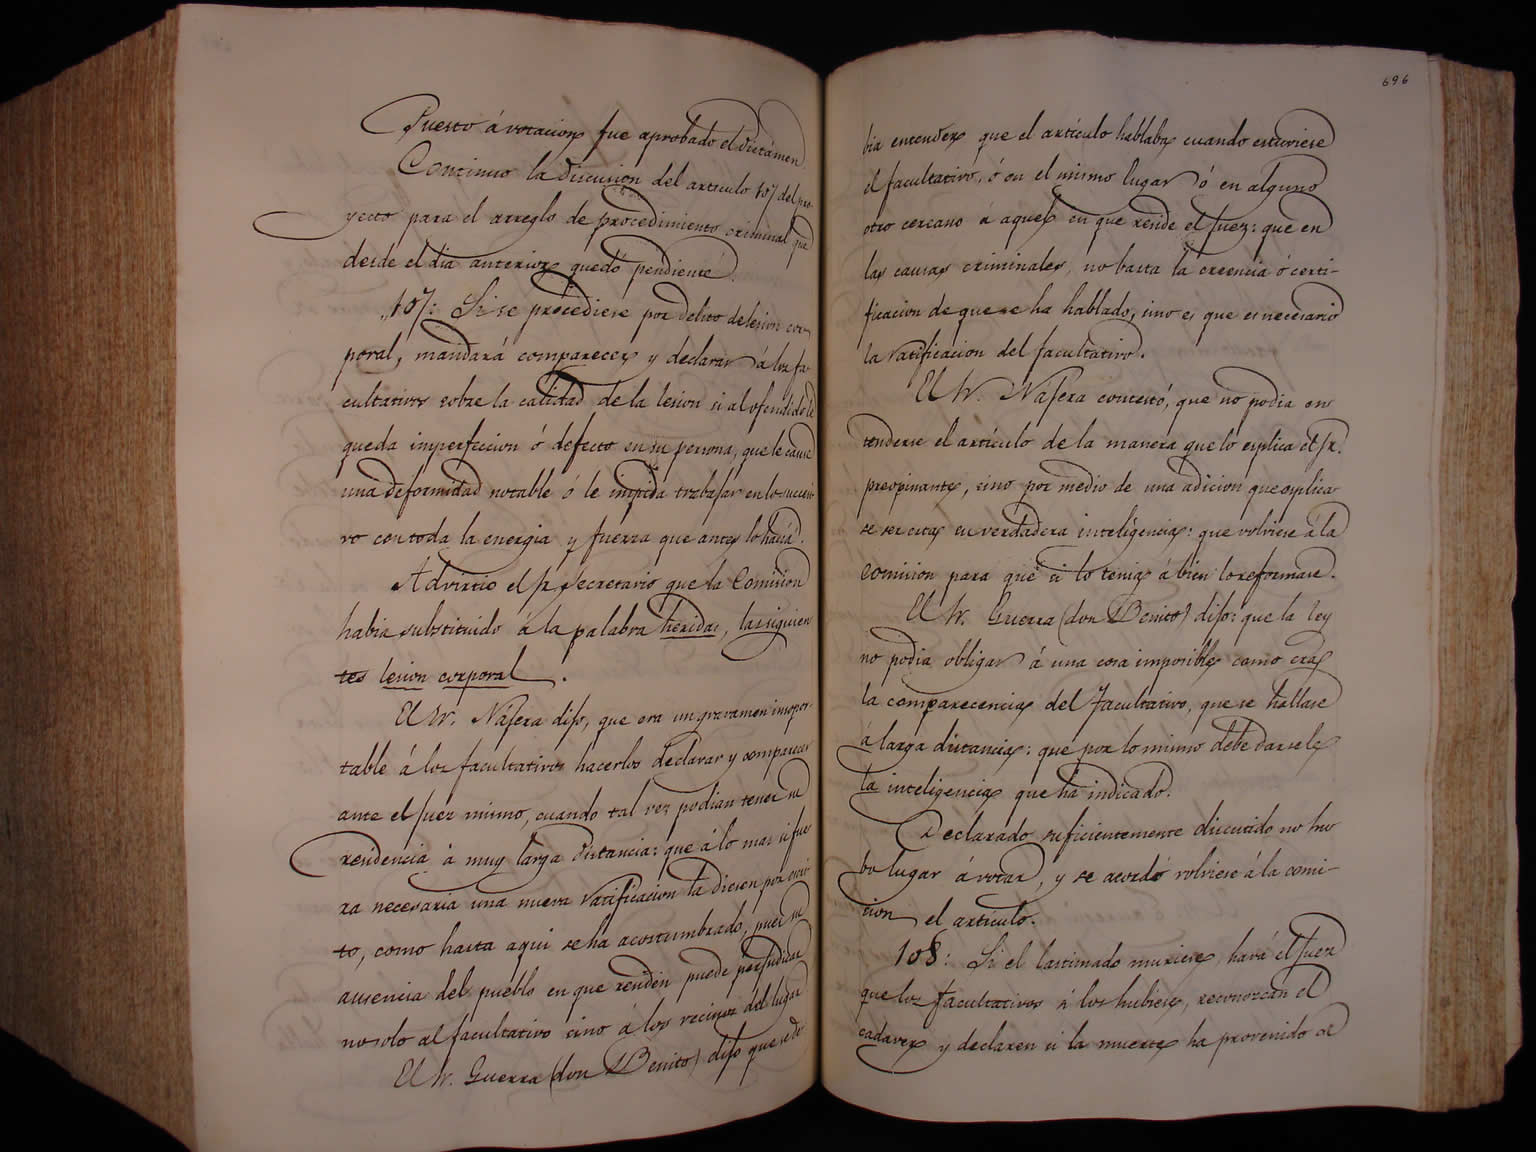 Puesto á votacion fue aprobado el dictámen
Continuó la discusion del articulo 107 del pro-
yecto para el arreglo de procedimiento criminal que
desde el dia anterior quedó pendiente.
"107: Si se procediere por delito de lesion cor-
poral, mandará comparecer y declarar á los fa-
cultativos sobre la calidad de la lesion si al ofendido le
queda imperfeccion ó defecto en su persona, que le cause
una deformidad notable ó le impida trabajar en lo sucesi-
vo con toda la energia y fuerza que antes lo hacia.
Advirtió el Sr Secretario que la Comision
habia substituido á la palabra heridas, las siguien
tes lesion corporal.
El Sr. Nájera dijo, que era un gravamen insopor-
table á los facultativos hacerlos declarar y comparecer
ante el juez mismo, cuando tal vez podian tener su
residencia á muy larga distancia: que á lo mas si fue
ra necesaria una nueva ratificacion la diesen por escri
to, como hasta aqui se ha acostumbrado, pues su
ausencia del pueblo en que residen puede perjudicar
no solo al facultativo sino á los vecinos del lugar
El Sr. Guerra (don Benito) dijo que se de
696
bia entender que el artículo hablaba cuando estuviese
el facultativo, ó en el mismo lugar ó en alguno
otro cercano á aquel en que reside el Juez: que en
las causas criminales, no basta la creencia ó certi-
ficacion de que se ha hablado, sino es que es necesario
la ratificacion del facultativo.
El Sr. Nájera contestó, que no podia en
tenderse el artículo de la manera que lo esplica el Sr.
preopinante, sino por medio de una adicion que esplica-
se ser esta su verdadera inteligencia: que volviese á la
comision para que si lo tenia á bien lo reformase.
El Sr. Guerra (don Benito) dijo: que la ley
no podia obligar á una cosa imposible como era
la comparecencia del Facultativo, que se hallase
á larga distancia: que por lo mismo debe darsele
la inteligencia que ha indicado.
Declarado suficientemente discutido no hu
bo lugar á votar, y se acordó volviese á la comi-
cion el artículo.
108: Si el lastimado muriere, hará el Juez
que los facultativos si los hubiere, reconozcan el
cadaver y declaren si la muerte ha provenido de